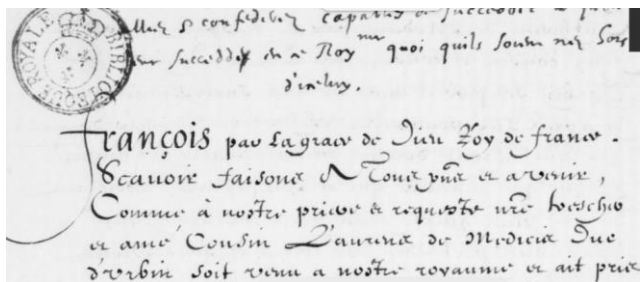 BIBLIOTHECAE REGIAE
capables de succeder
Roy me quoi quils soient nez hors
d'iceluy.
François par La grace de Dieu Roy de france.
Scavoir faisons A Tous pñs et avenir,
Comme à nostre priere et requeste nře treschier
et amé Cousin Laurens de Medicis Duc
d'urbin soit venu a nostre royaume et ait pris